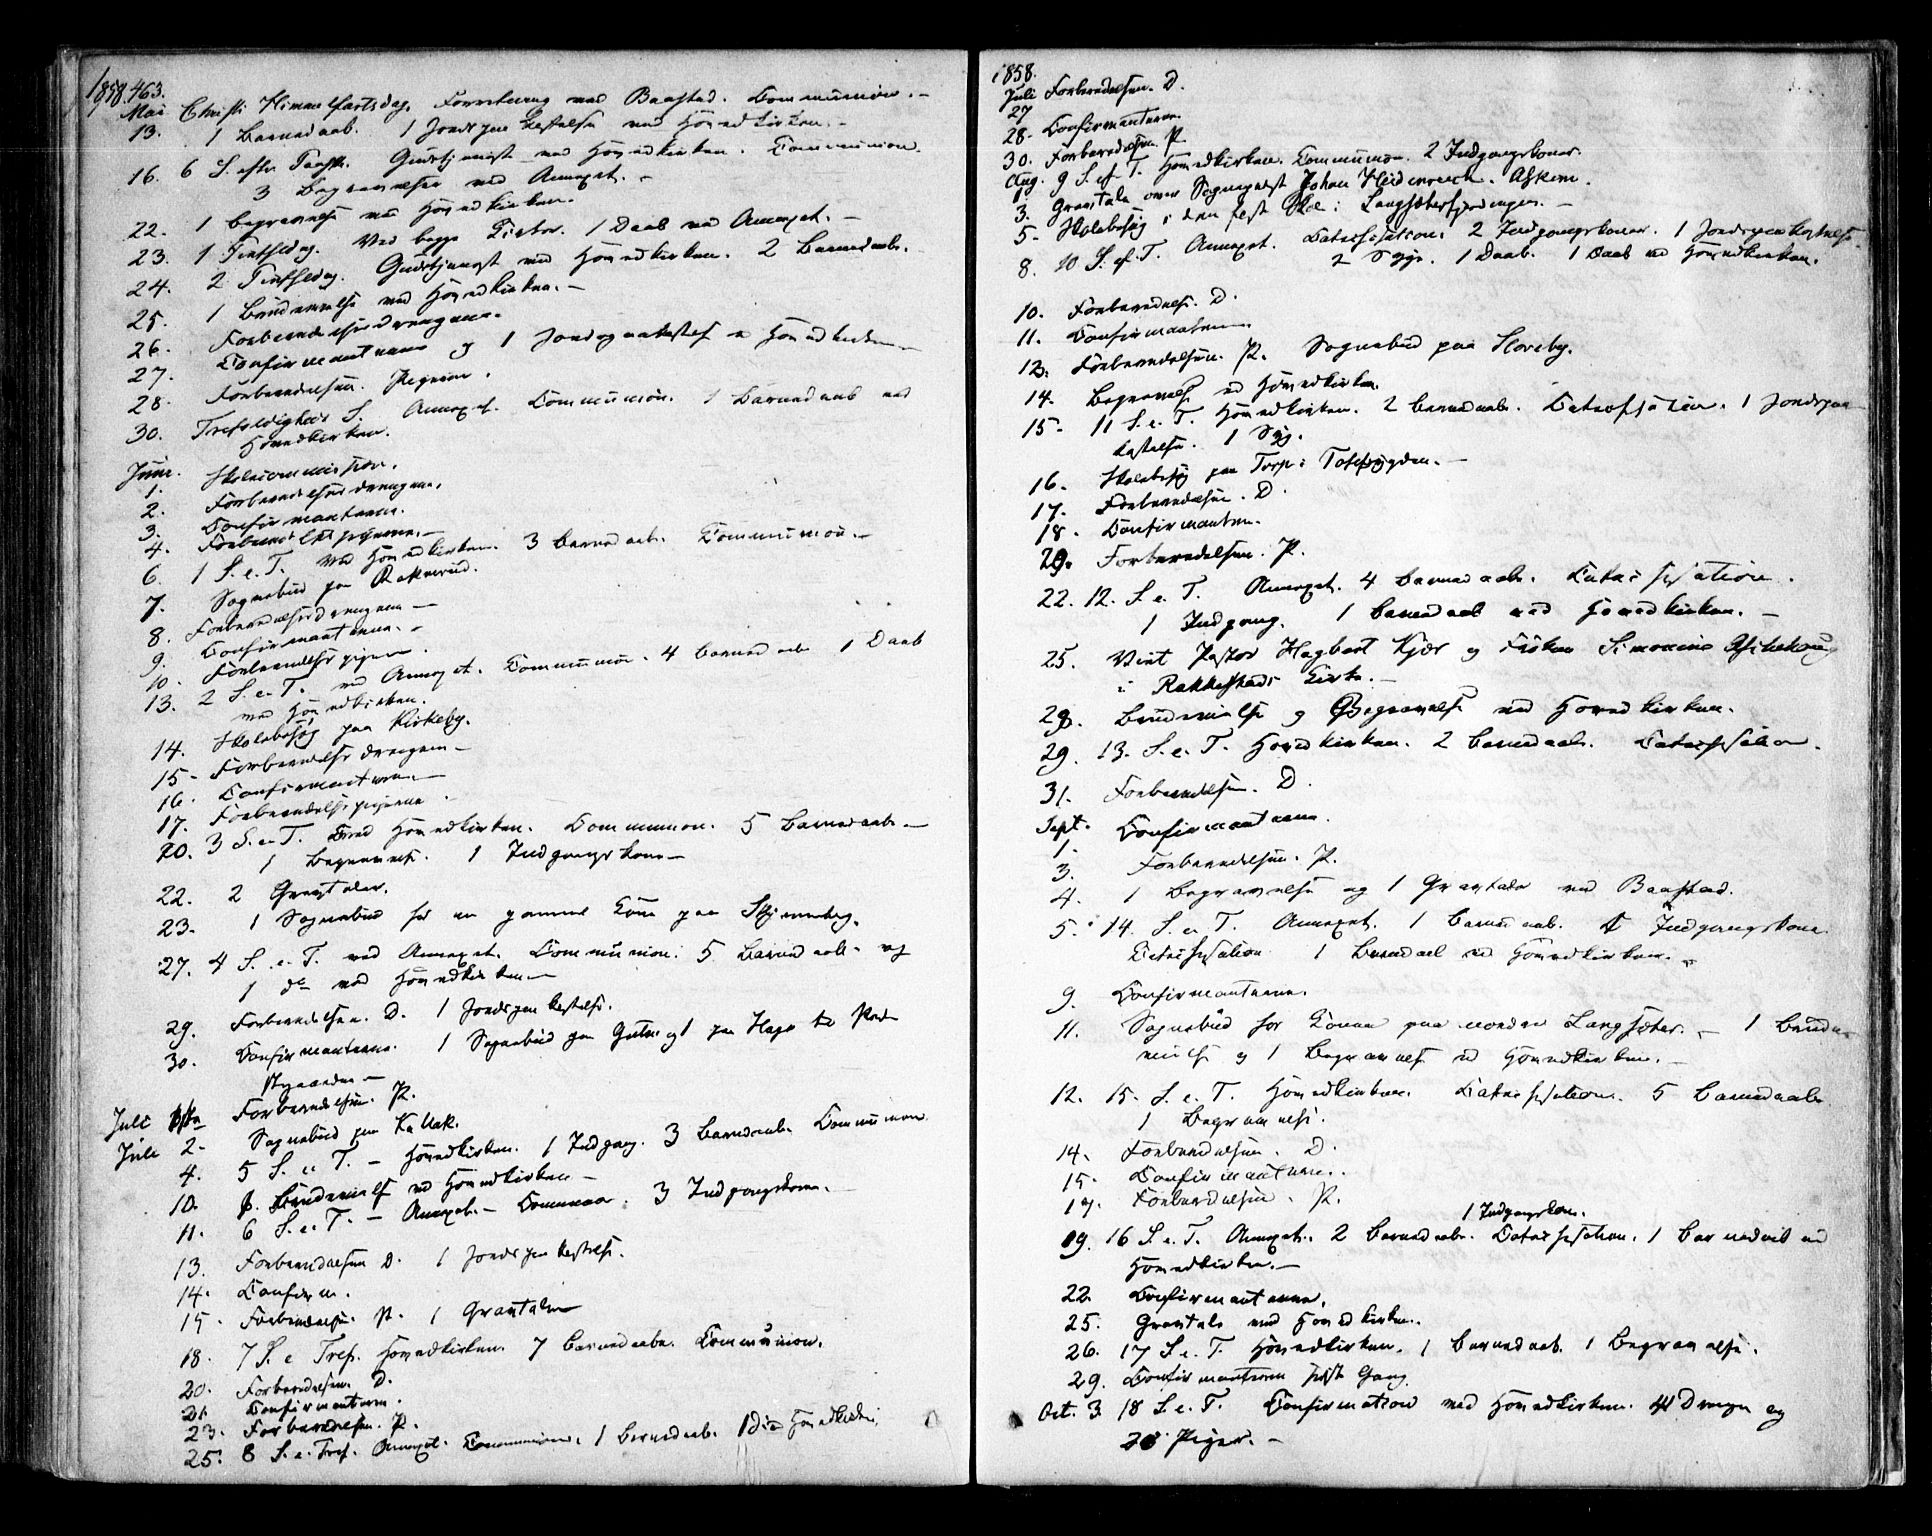 1858. 463.
Mai Christi Himmelfartsdag. Forretning ved Baastad. Communion. –
13. 1 Barnedaab. 1 Jordspaakastelse ved Hovedkirken. –
16. 6 S. eftr. Paaske. Gudstjeneste ved Hovedkirken. Communion.
3 Begravelser ved Annexet. –
22. 1 Begravelse ved Hovedkirken.
23. 1 Pintsedag. Ved begge Kirker. 1 Daab ved Annexet. –
24. 2 Pintsedag. Gudstjeneste ved Hovedkirken. 2 Barnedaab.
25. 1 Brudevielse ved Hovedkirken. –
26. Forberedelsesdrengene.
27. Confirmanterne og 1 Jordspaakastelse v Hovedkirken –
28. Forberedelsen. Pigerne.
30. Trefoldigheds S. Annexet. Communion. 1 Barnedaab ved
Hovedkirken.
Juni. Skolecommission.
1.
2. Forberedelsesdrengene.
3. Confirmanterne.
4. Forberedelsespigerne. –
6. 1 S. e. T. Ved Hovedkirken. 3 Barnedaab. Communion. –
7. Sognebud paa Raknerud.
8. Forberedelsesdrengene –
9. Confirmanterne. –
10. Forberedelsespigerne.
13. 2 S. e. T. ved Annexet. Communion. 4 Barnedaab 1 Daab
ved Hovedkirken.
14. Skolebesøg paa Kirkeby.
15 – Forberedelsesdrengene –
16. Confirmanterne. –
17. Forberedelsespigerne.
20. 3 S. e. T. Hovedkirken. Communion. 5 Barnedaab –
1 Begravelse. 1 Indgangskone –
22. 2 Gravtaler.
23. 1 Sognebud for en gammel Kone paa
27. 4 S. e. T. ved Annexet. Communion. 5 Barnedaab og
1 do ved Hovedkirken –
29. Forberedelsen. D. 1 Jordspaakastelse.
30. Confirmanterne. 1 Sognebud paa og 1 paa
Juli Forberedelsen. P.
Juli 2 – Sognebud paa Kallak.
4. 5 S. e. T. – Hovedkirken. 1 Indgang. 3 Barnedaab. Communion
10. Brudevielse ved Hovedkirken –
11. 6 S. e. T. – Annexet. – Communion. 3 Indgangskoner. –
13. Forberedelsen D. 1 Jordspaakastelse.
14. Confirm.
15. Forberedelsen. P. 1 Gravtale
18. 7 S. e Tref. Hovedkirken. 7 Barnedaab. Communion.
20. Forberedelsen. D.
21. Confirmanterne.
23. Forberedelsen. P.
25. 8 S. e. Tref. Annexet. Communion. 1 Barnedaab. 1 do v Hovedkirken.
1858.
Juli Forberedelsen. D.
27
28. Confirmanterne.
30. Forberedelsen P.
Aug. 9 S. ef T. Hovedkirken. Communion. 2 Indgangskoner.
1.
3. Gravtale over Sogneprest Johan Heidenreich. Askim.
5 – Skolebesøg i den fest i Langsæterfjerdingen. –
8. 10 S. ef. T. Annexet. Catechisation. 2 Indgangskoner. 1 Jordspaakastelse
2 Syge. 1 Daab. 1 Daab ved Hovedkirken.
10. Forberedelse. D.
11. Confirmanterne
13. Forberedelsen. P. Sognebud paa
14. Begravelse ved Hovedkirken.
15 – 11 S. e. T. Hovedkirken. 2 Barnedaab. Catechisation. 1 Jordspaa
kastelse. 1 Syg.
16. Skolebesøg paa Torp i –
17. Forberedelsen. D.
18. Confirmanterne.
20. Forberedelsen. P.
22. 12. S. e. T. Annexet. 4 Barnedaab. Catechisation.
1 Indgang. 1 Barnedaab ved Hovedkirken. –
25. Viet Pastor Hagbart Kjær og Frøken Simonine Aschehoug
i Rakkestads Kirke. –
28. Brudevielse og Begravelse ved Hovedkirken.
29. 13. S. e. T. Hovedkirken. 2 Barnedaab. Catechisation.
31. Forberedelsen. D.
Sept. Confirmanterne.
1.
3. Forberedelsen. P.
4. 1 Begravelse og 1 Gravtale ved Baastad.
5. 14. S. e. T. Annexet. 1 Barnedaab. Indgangskone.
Catechisation 1 Barnedaab ved Hovedkirken. –
9. Confirmanterne.
11. Sognebud for Konen paa nordre Langsæter. – 1 Brude-
vielse og 1 Begravelse ved Hovedkirken. –
12. 15 – S. e. T. Hovedkirken. Catechisation. 5 Barnedaab
1 Begravelse.
14. Forberedelsen. D.
15. Confirmanterne.
17. Forberedelsen. P.
1 Indgangskone.
19. 16 S. e. T. Annexet. 2 Barnedaab. Catechisation. 1 Barnedaab ved
Hovedkirken. –
22. Confirmanterne.
25. Gravtale ved Hovedkirken.
26. 17 S. e. T. Hovedkirken. 1 Barnedaab. 1 Begravelse.
29. Confirmanterne sidste Gang.
Oct. 3. 18 S. e. T. Confirmation ved Hovedkirken. Drenge og
Piger. –